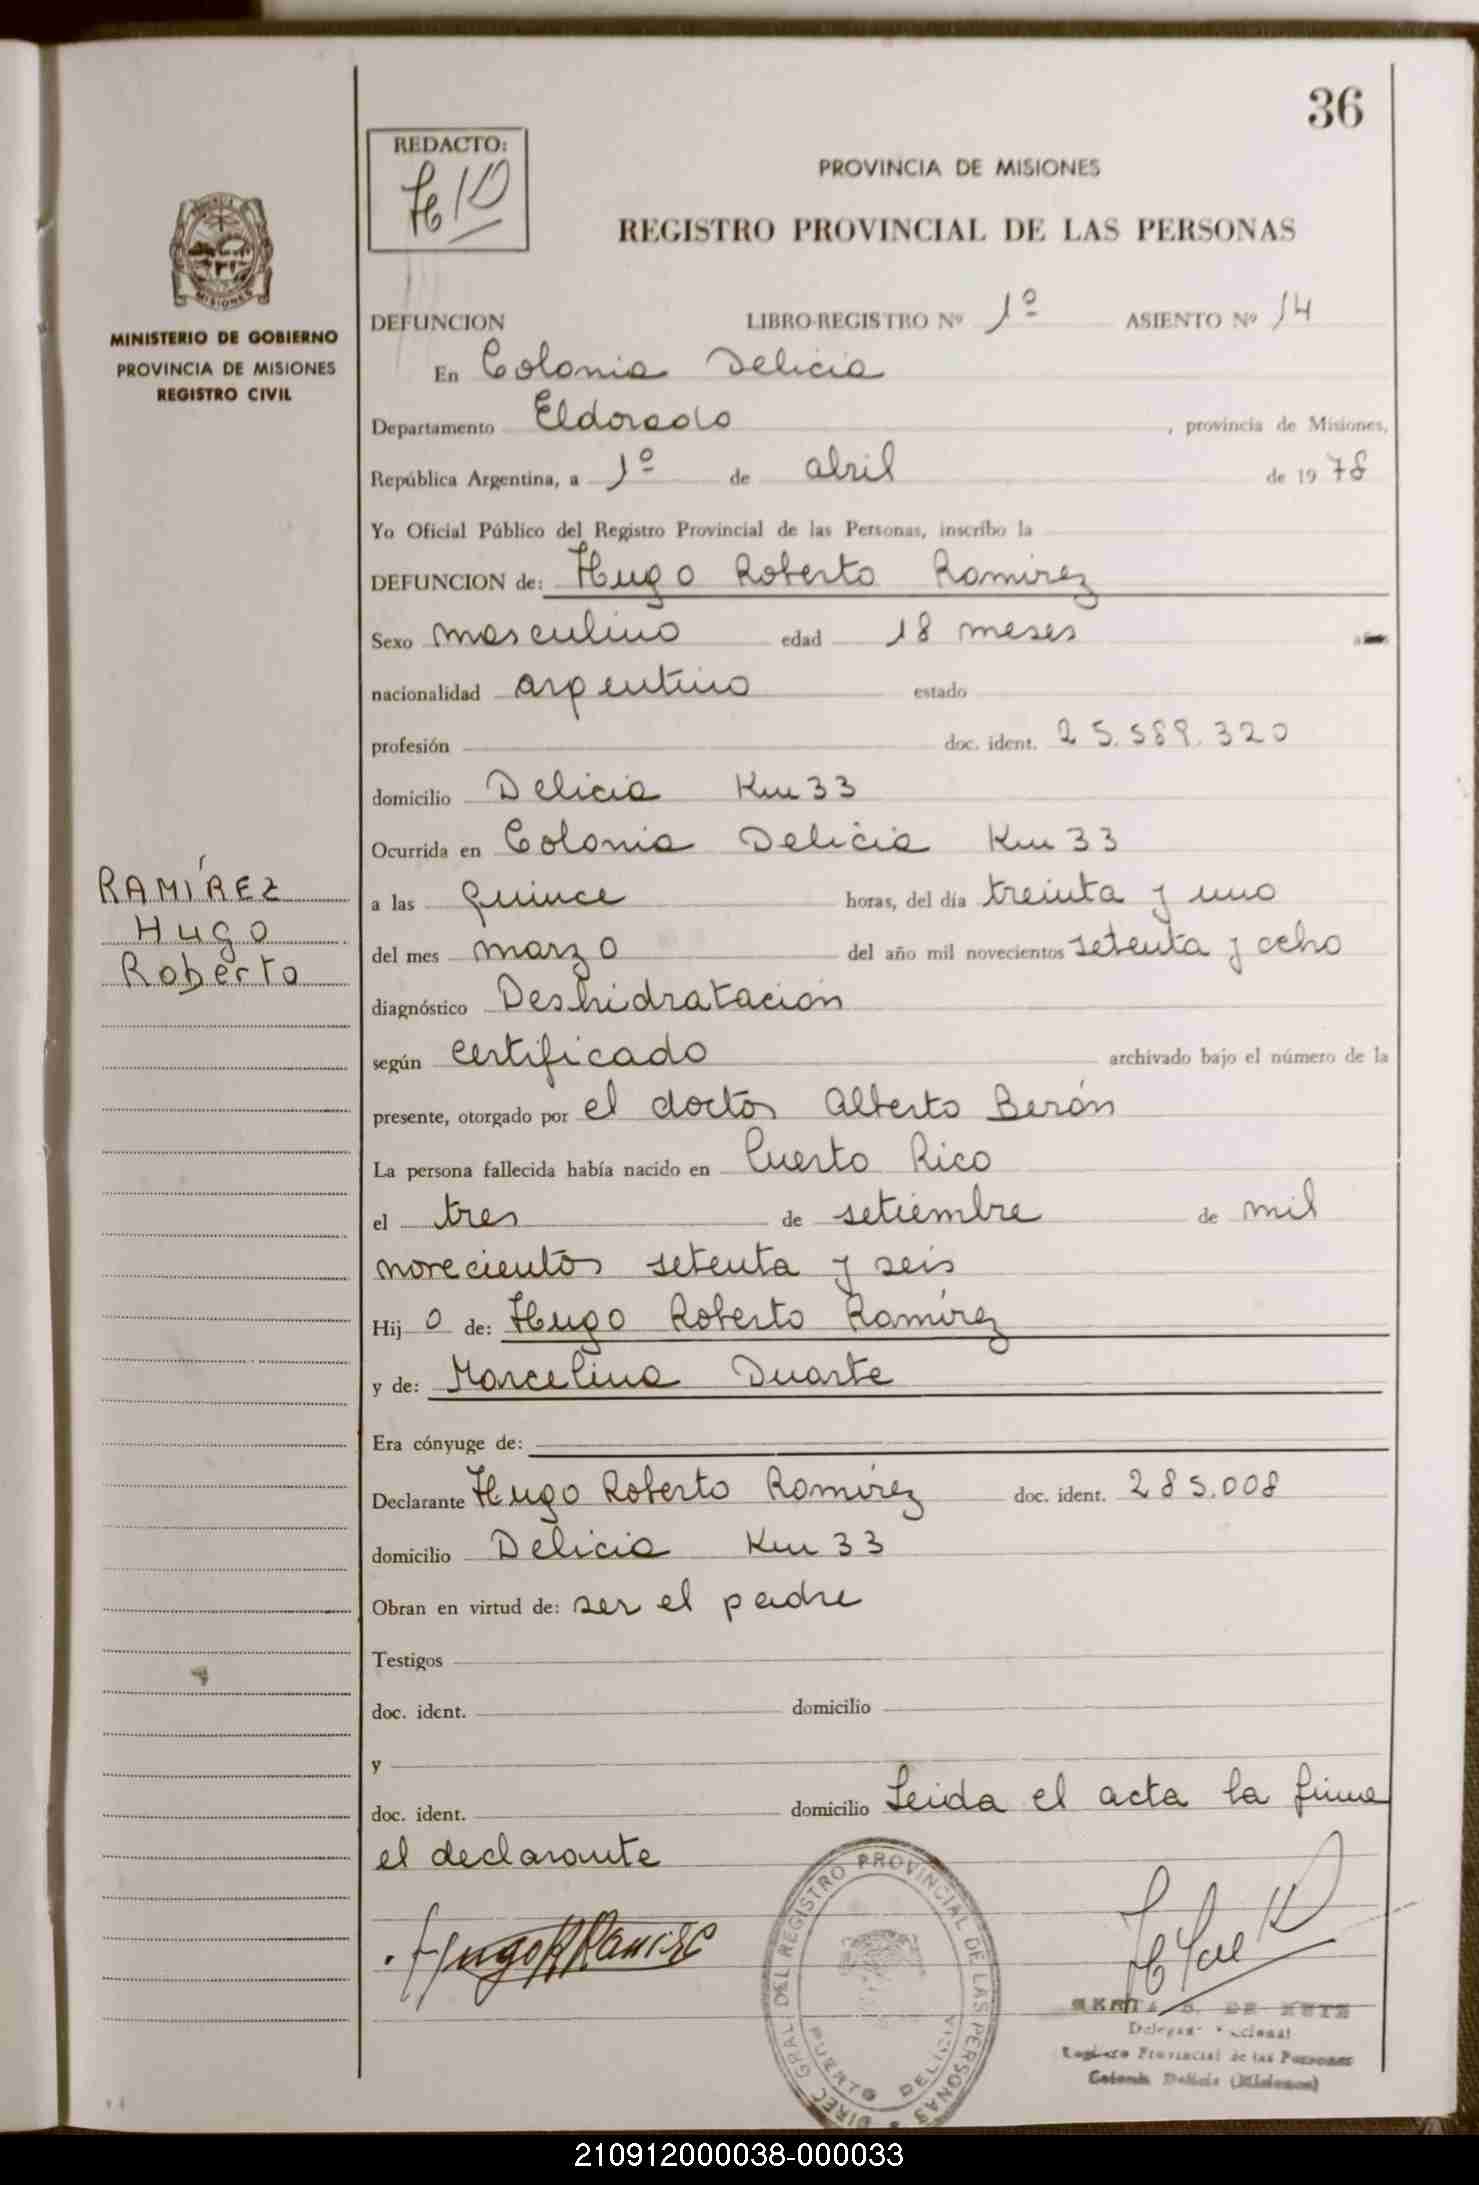 36
REDACTO:
PROVINCIA DE MISIONES
REGISTRO PROVINCIAL DE LAS PERSONAS
MISIONES
MINISTERIO DE GOBIERNO
PROVINCIA DE MISIONES
REGISTRO CIVIL
DEFUNCION LIBRO-REGISTRO Nº 1º ASIENTO Nº 14
En Colonia Delicia
Departamento Eldorado , provincia de Misiones,
República Argentina, a 1º de abril de 1978
Yo Oficial Público del Registro Provincial de las Personas, inscribo la
DEFUNCION de: Hugo Roberto Ramírez
Sexo masculino edad 18 meses
nacionalidad argentino estado
profesión doc. ident. 25.589.320
domicilio Delicia Km 33
Ocurrida en Colonia Delicia Km 33
a las quince horas, del día treinta y uno
del mes marzo del año mil novecientos setenta y ocho
diagnóstico Deshidratación
según certificado archivado bajo el número de la
presente, otorgado por el doctor Alberto Berón
La persona fallecida había nacido en Puerto Rico
el tres de setiembre de mil
novecientos setenta y seis
Hij o de: Hugo Roberto Ramírez
y de: Marcelina Duarte
Era cónyuge de:
Declarante Hugo Roberto Ramírez doc. ident. 285.008
domicilio Delicia Km 33
Obran en virtud de: ser el padre
Testigos
doc. ident. domicilio
y
doc. ident. domicilio Leida el acta la firma
el declarante
RAMÍREZ
Hugo
Roberto
Hugo R Ramirez
DIREC GRAL DEL REGISTRO PROVINCIAL DE LAS PERSONAS
PUERTO DELICIA
Registro Provincial de las Personas
Colonia Delicia (Misiones)
210912000038-000033